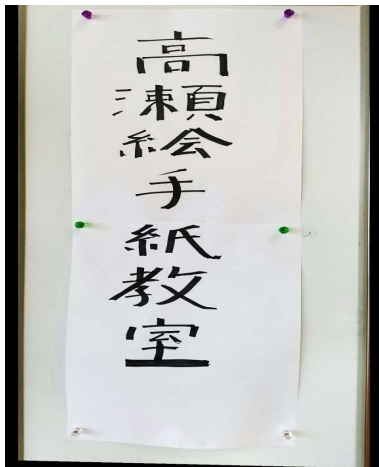 高瀬絵手紙教室